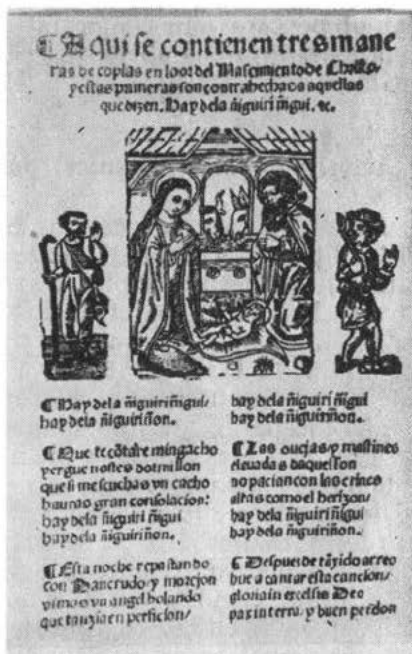 ¶ A qui se contienen tres mane
ras de coplas en loor del Nascimiento de Christo,
y estas primeras son contrahechas a aquellas
que dizen. Hay de la ñiguiri ñigui. &c.
¶ Hay de la ñiguiri ñigui/
hay dela ñiguiriñon.
¶ Que te cõtare mingacho
yergue no estes dormillon
que si me scuchas vn cacho
hauras gran consolacion:
hay dela ñiguiri ñigui
hay dela ñiguiriñon.
¶ Esta noche repastando
con Pancrudo y morejon
vimos vn angel bolando
que tanxia en perficion/
hay dela ñiguiri ñigui
hay dela ñiguiriñon.
¶ Las ouejas y mastines
eleuadas daquel son
no pacian con las crines
altas como el herizon/
hay dela ñiguiri ñigui
hay dela ñiguiriñon.
¶ Despues de tãyido arreo
hue a cantar esta cancion/
gloria in excelsis Deo
pax in terra, y buen perdon